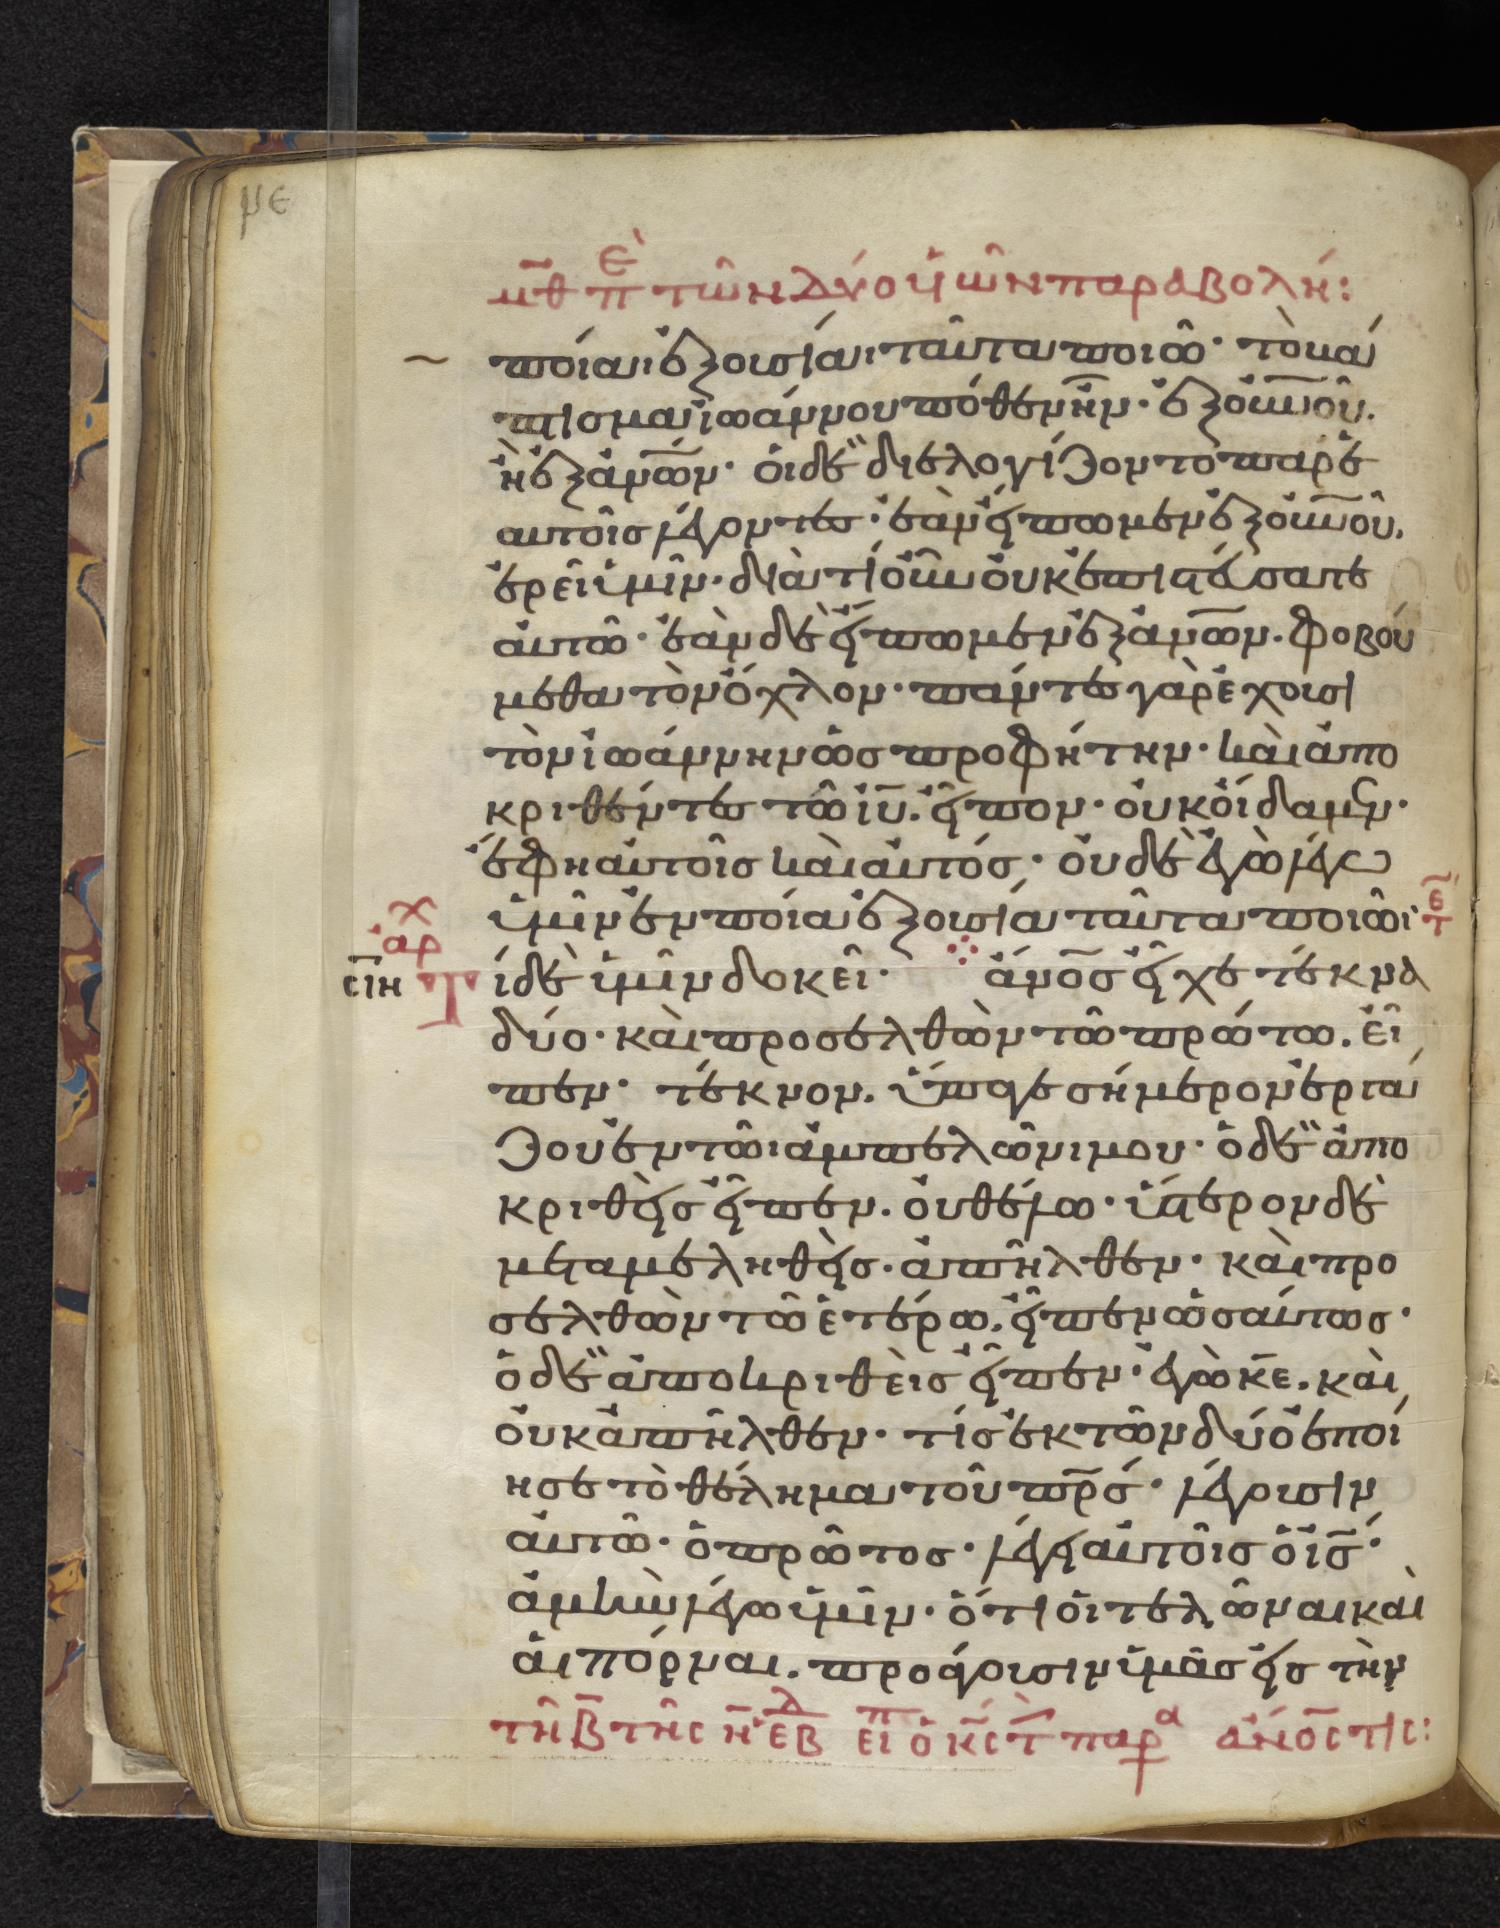 με
μ̅θ̅ πὲ τῶν δύο ὑιῶν παραβολή:
ποία ἐξουσία ταῦτα ποιῶ· τὸ βά
πτισμα ἰωάννου πόθεν ἦν· ἐξ ο̅υ̅ν̅ο̅ῦ.
ἢ ἐξ ἀν̅ω̅ν· οἱ δὲ διελογίζοντο παρ' ἑ
αυτοῖς λέγοντες· ἐὰν εἴπωμεν ἐξ ο̅υ̅ν̅ο̅ῦ,
ἐρεῖ ὑμῖν· διὰ τί οὖν οὐκ ἐπιστεύσατε
αὐτῶ· ἐὰν δὲ εἴπωμεν ἐξ ἀν̅ω̅ν. φοβού
μεθα τὸν ὄχλον· πάντες γὰρ ἔχουσι
τὸν ἰωάννην ὡς προφήτην· καὶ ἀπο
κριθέντες τῶ ι̅υ̅. εἶπον· οὐκ οἴδαμεν·
ἔφη αὐτοῖς καὶ αὐτός· οὐδὲ ἐγὼ λέγω
ὑμῖν ἐν ποία ἐξουσία ταῦτα ποιῶι·
ε̅τ̅
χ
αρ
σ̅ι̅η Τ ί δὲ ὑμῖν δοκεῖ· ἄν̅ο̅ς εἶχε τέκνα
δύο· καὶ προσελθὼν τῶ πρώτω. εἶ
πεν· τέκνον. ὕπαγε σήμερον ἐργά
ζου ἐν τῶι ἀμπελῶνι μου· ὁ δὲ ἀπο
κριθεὶς εἶπεν. οὐ θέλω· ὕστερον δὲ
μεταμεληθεὶς. ἀπῆλθεν· καὶ προ
σελθὼν τῶ ἑτέρω. εἶπεν ὡσαύτως·
ὁ δὲ ἀποκριθεὶς εἶπεν· ἐγὼ κ̅ε̅. καὶ
οὐκ ἀπῆλθεν· τίς ἐκ τῶν δύο ἐποί
ησε τὸ θέλημα τοῦ π̅ρ̅ς· λέγουσιν
αὐτῶ· ὁ πρῶτος· λέγει αὐτοῖς ὁ ι̅ς̅·
ἀμὴν λέγω ὑμῖν· ὅτι οἱ τελῶναι καὶ
αἱ πόρναι. προάγουσιν ὑμᾶς εἰς τὴν
τῆ β̅ τῆς η̅ εβδ ειπ ὁ κ̅ς̅ τ̅ παρα ἄν̅ο̅ς τις: